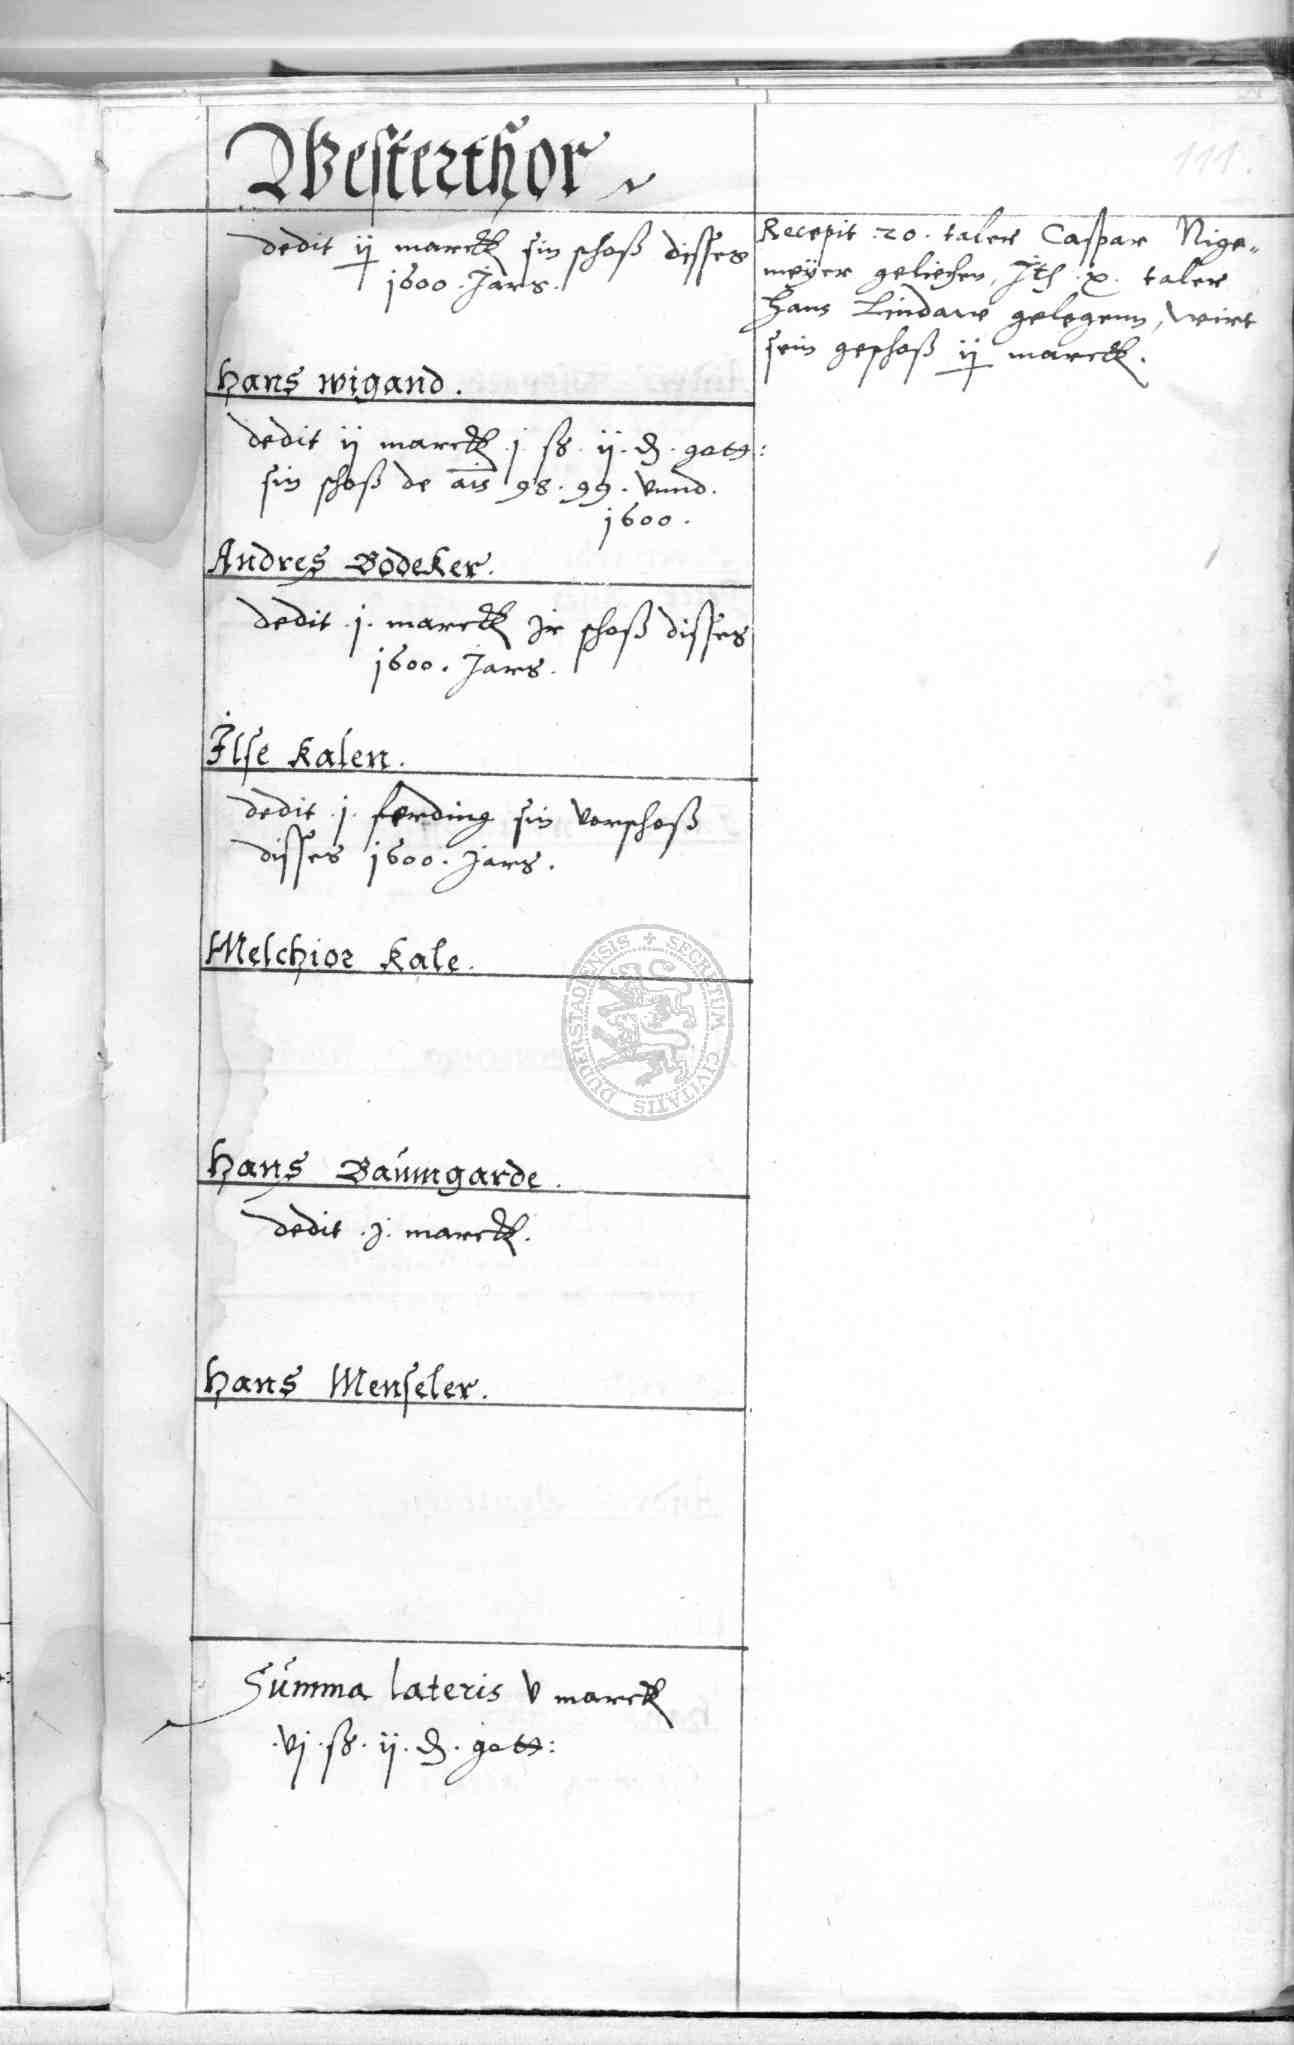 111.
Westerthor
dedit ij marck sin schoß disses
1600. Jars.
Recepit .20. taler Caspar Nige-
meÿer geliehen, Jth .x. taler
Hans Lindaw gelegenn, wirt
sein geschoß ij marck.
Hans wigand.
dedit ij marck .j. ß. ij. ₰. gott:
sin schoß de aīs 98. 99. vnnd.
1600.
Andres Bodeker.
dedit .j. marck Jr schoß disses
1600. Jars.
Ilse Kalen.
dedit .j. ferding sin vorschoß
disses 1600. Jars.
Melchior Kale.
SECRETUM CIVITATIS DUDERSTADIENSIS
Hans Baumgarde.
dedit .j. marck.
Hans Menseler.
Summa lateris v marck
.vj. ß. ij. ₰. gott: